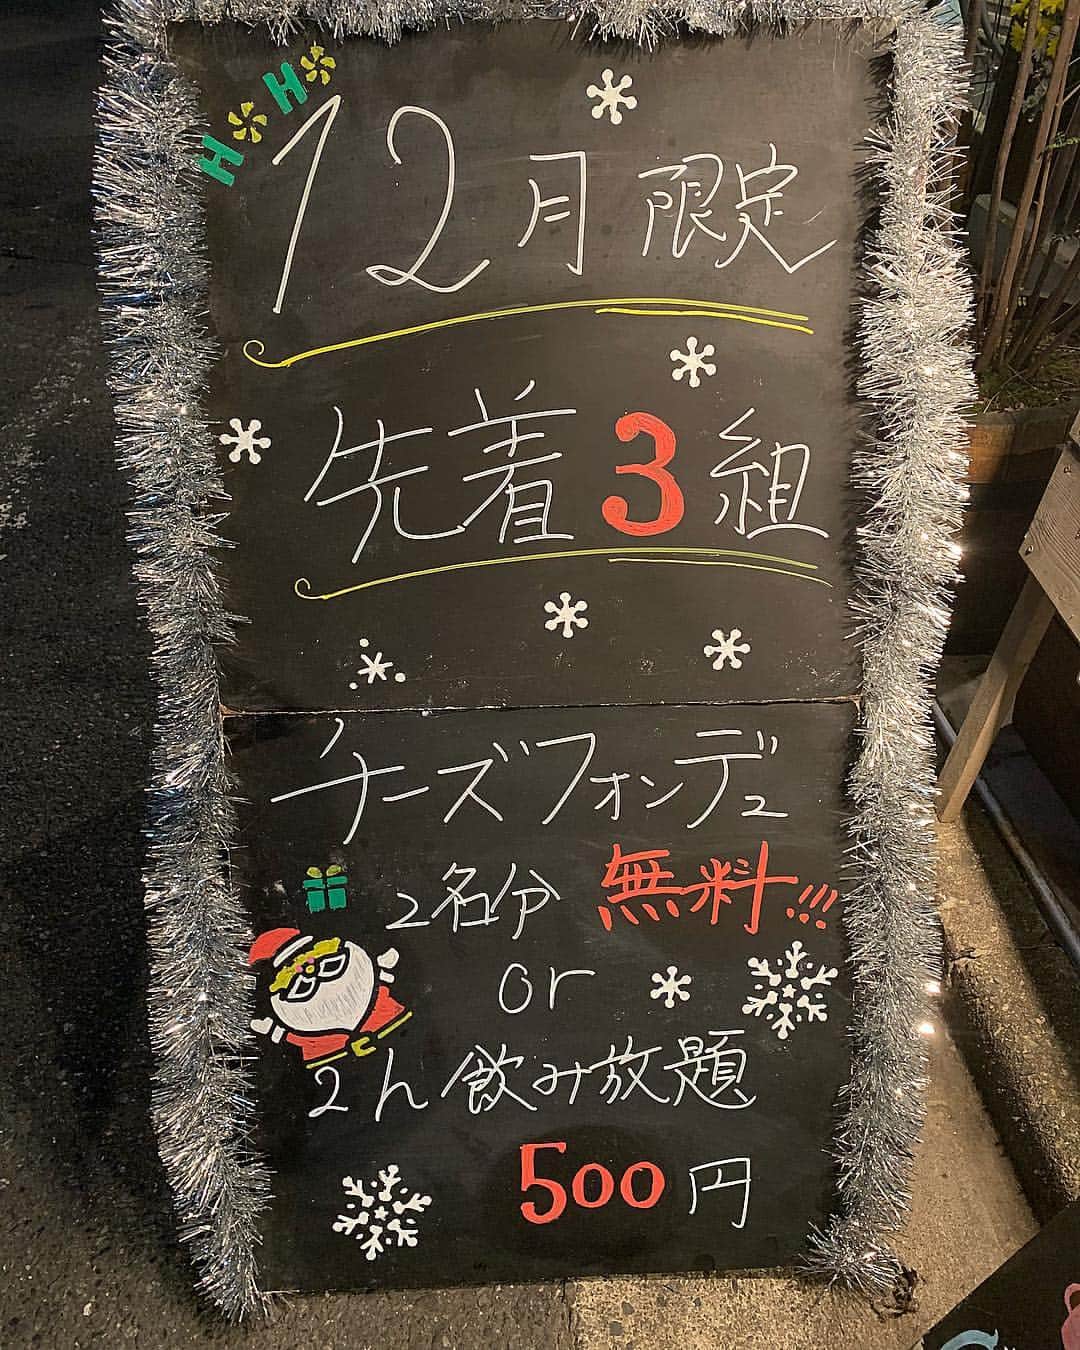 HO HO
12月 限定
先着 3 組
チーズフォンデュ
2名分 無料!!!
or
2h 飲み放題
500円